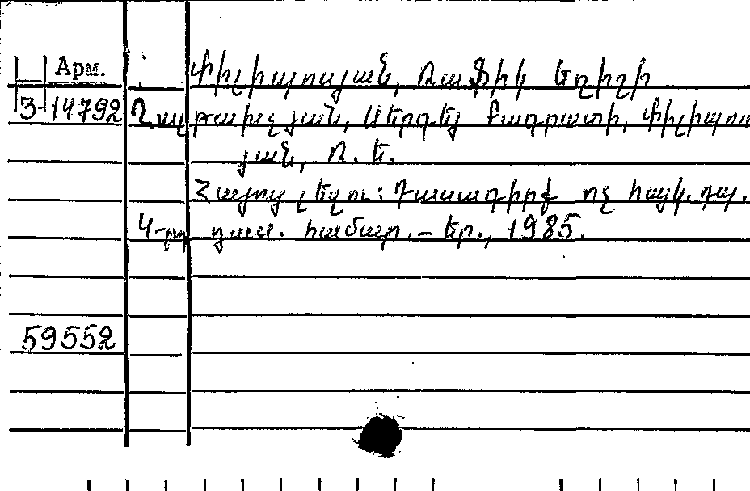 Арм. Փիլիպոսյան, Ռաֆիկ Եղիշի
3-14792 Ղալթախչյան, Սերգեյ Բագրատի, Փիլիպոս
յան, Ռ. Ե.
Հայոց լեզու: Դասագիրք ոչ հայկ. դպ.
4-րդ դաս. համար. – Եր., 1985.
59552